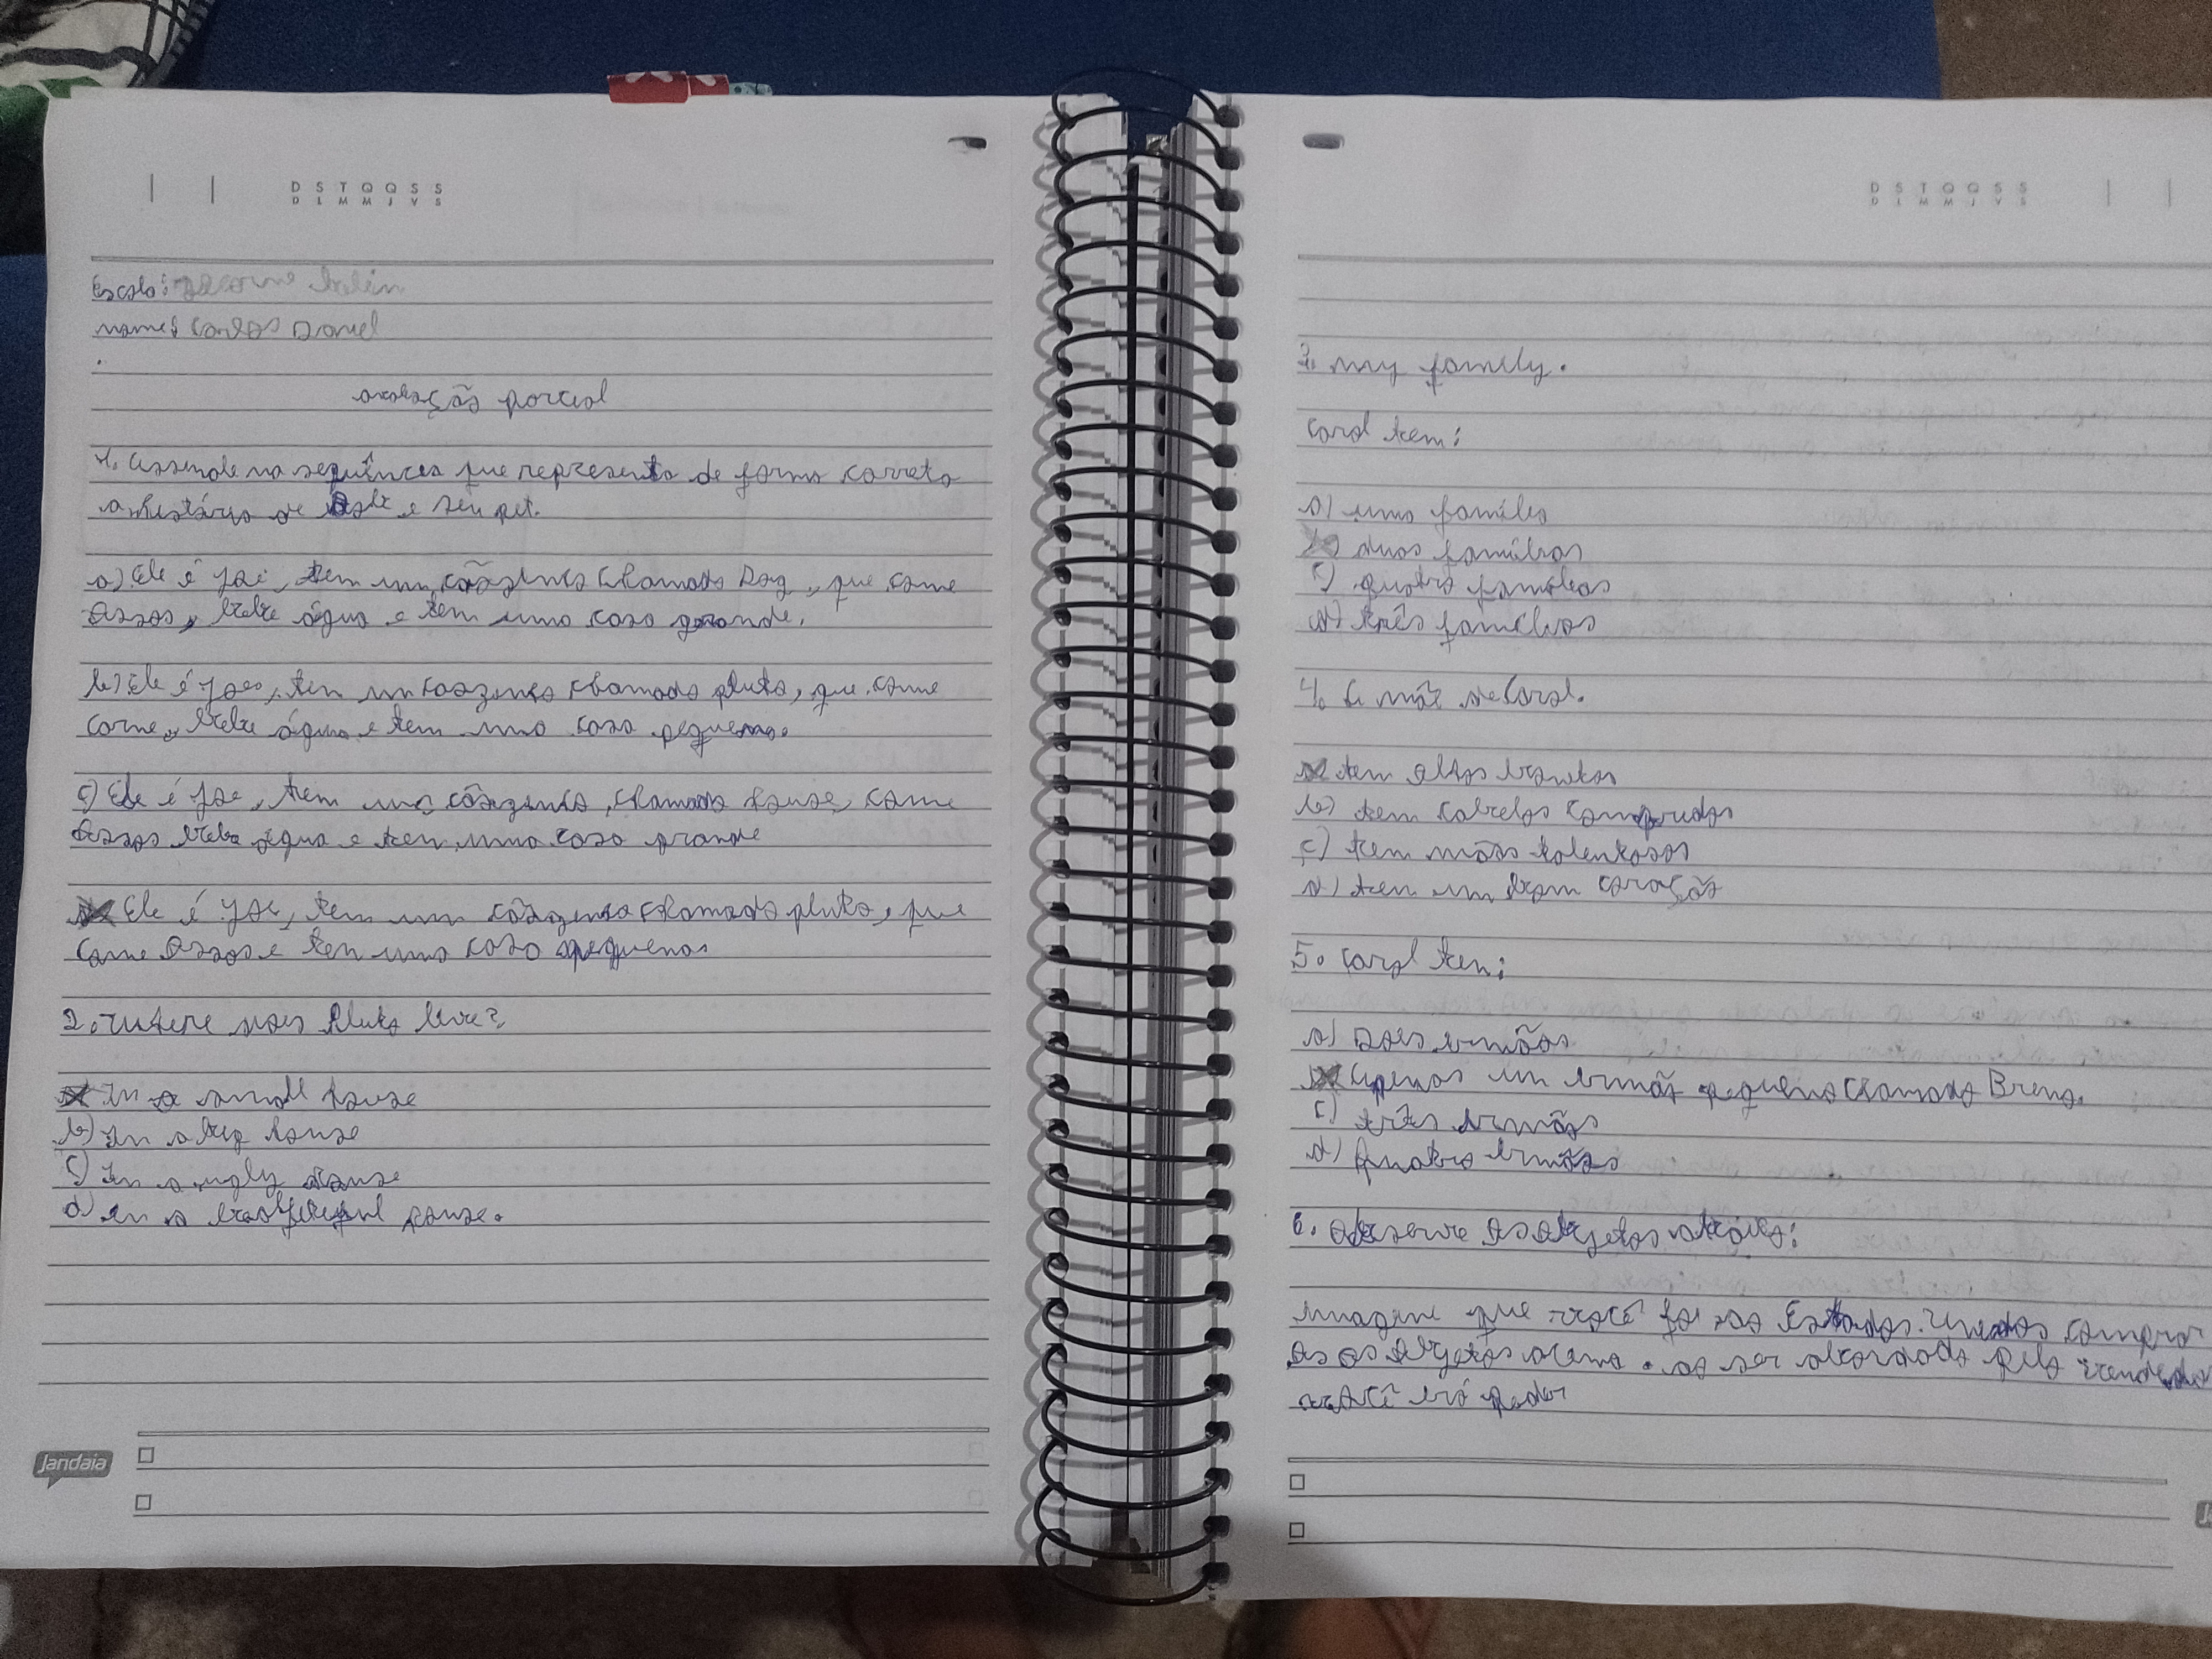 D S T Q Q S S
D L M M J V S
Escola:
nome: Carlos Daniel
avaliação parcial
1. Assinale na sequência que representa de forma correta
a história de e seu pet.
a) Ele é Joe, tem um cãozinho chamado Dog, que come
ossos, bebe água e tem uma casa grande.
b) Ele é Joe, tem um caozinho chamado pluto, que come
carne, bebe água e tem uma casa pequena.
c) Ele é Joe, tem um cãozinho, chamado house, come
ossos bebe água e tem uma casa grande
Ele é Joe, tem um cãozinho chamado pluto, que
come ossos e tem uma casa pequena
2. Pluto live?
In a small house
b) In a big house
c) In a ugly house
d) in a house.
Jandaia
D S T Q Q S S
D L M M J V S
3. my family.
Carol tem:
a) uma família
b) duas famílias
c) quatro famílias
d) três famílias
4. A mãe de Carol.
tem olhos bonitos
b) tem cabelos compridos
c) tem mãos talentosas
d) tem um bom coração
5. Carol tem:
a) Dois irmãos
Apenas um irmão pequeno chamado Breno.
c) três irmãos
d) quatro irmãos
6. Observe os objetos
imagine que você foi aos Estados Unidos comprar
os objetos acima. ao ser abordado pelo vendedor
você irá pedir